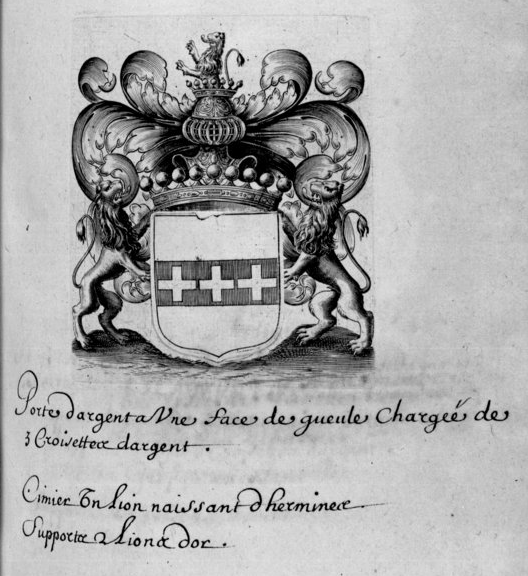 Porte dargent a Vne face de gueule Chargeé de
3 Croisettex dargent .
Cimier Vn Lion naissant dherminex
Supportx 2 Lionx dor .